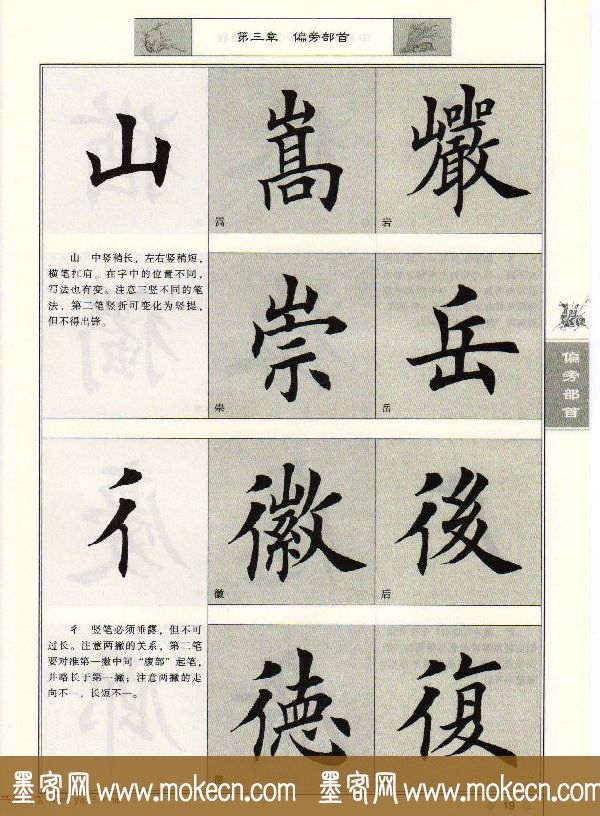 第三章 偏旁部首
山
嵩
巖
嵩
岩
山 中竖稍长,左右竖稍短,
横笔扛肩。在字中的位置不同,
写法也有变。注意三竖不同的笔
法,第二笔竖折可变化为竖提,
但不得出锋。
崇
岳
崇
岳
偏旁部首
彳
徽
後
徽
后
彳 竖笔必须垂露,但不可
过长。注意两撇的关系,第二笔
要对准第一撇中间“腹部”起笔,
并略长于第一撇;注意两撇的走
向不一,长短不一。
德
復
墨客网 www.mokecn.com 墨客网 www.mokecn.com
19